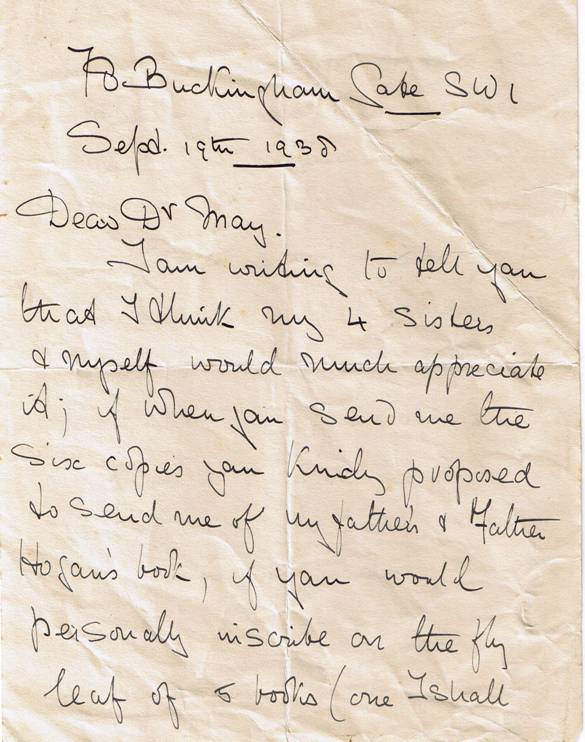 78. Buckingham Gate SW1
Sept. 19th 1938
Dear Dr May.
I am writing to tell you
that I think my 4 sisters
& myself would much appreciate
it; if when you send me the
six copies you kindly proposed
to send me of my father's & Father
Hogan's book, if you would
personally inscribe on the fly
leaf of 5 books (one I shall